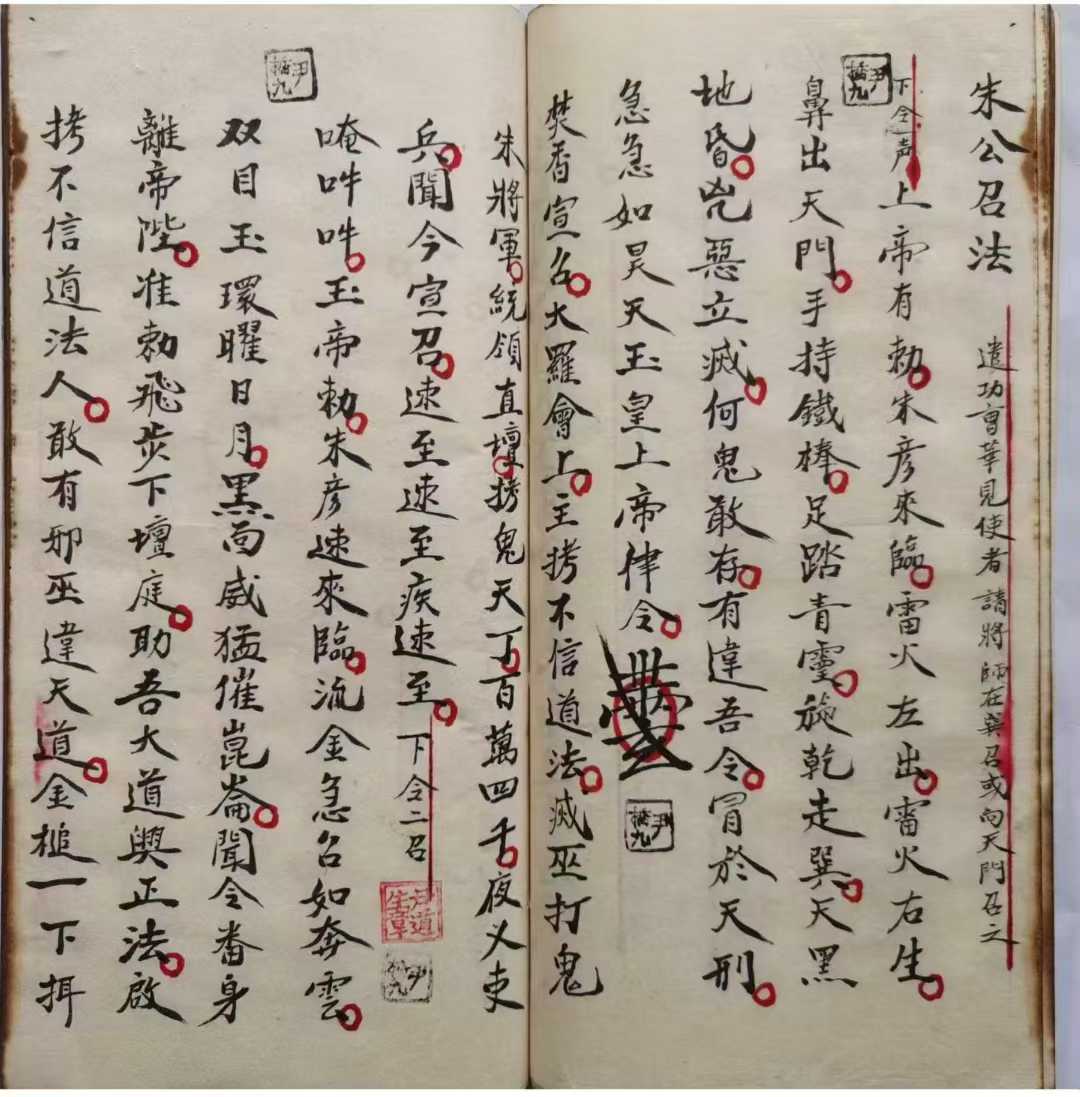 朱公召法
遣功曹華見使者請將師在巽召或向天門召之
下令一声
上帝有勅朱彦來臨雷火左出雷火右生
鼻出天門手持鐵棒足踏青雲旋乾走巽天黑
地昏兇惡立滅何鬼敢存有違吾令冐於天刑
急急如昊天玉皇上帝律令
焚香宣召大羅會上主拷不信道法滅巫打鬼
朱將軍統領直壇拷鬼天丁百萬四千夜乂吏
兵聞今宣召速至速至疾速至
下令二召
唵吽吽玉帝勅朱彦速來臨流金急召如奔雲
双目玉環曜日月黑面威猛催崑崙聞令番身
離帝陛准勅飛步下壇庭助吾大道興正法啟
拷不信道法人敢有邪巫違天道金槌一下拝